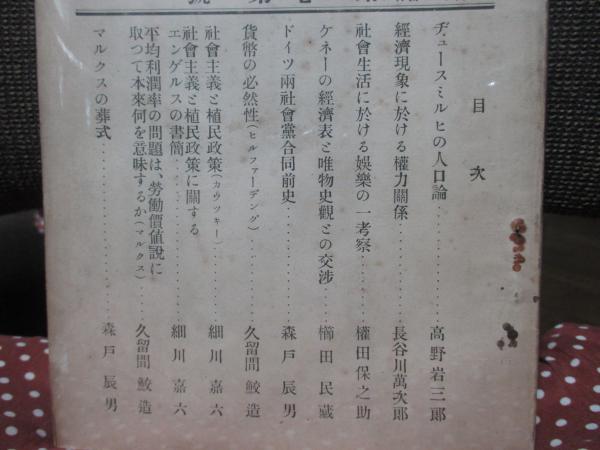 目次
ヂュースミルヒの人口論………高野岩三郞
經濟現象に於ける權力關係………長谷川萬次郞
社會生活に於ける娛樂の一考察………權田保之助
ケネーの經濟表と唯物史觀との交渉………櫛田民藏
ドイツ兩社會黨合同前史………森戶辰男
貨幣の必然性(ヒルファーディング)………久留間鮫造
社會主義と植民政策(カウツキー)………細川嘉六
社會主義と植民政策に關する
エンゲルスの書簡………細川嘉六
平均利潤率の問題は、勞働價値說に
取つて本來何を意味するか(マルクス)………久留間鮫造
マルクスの葬式………森戶辰男